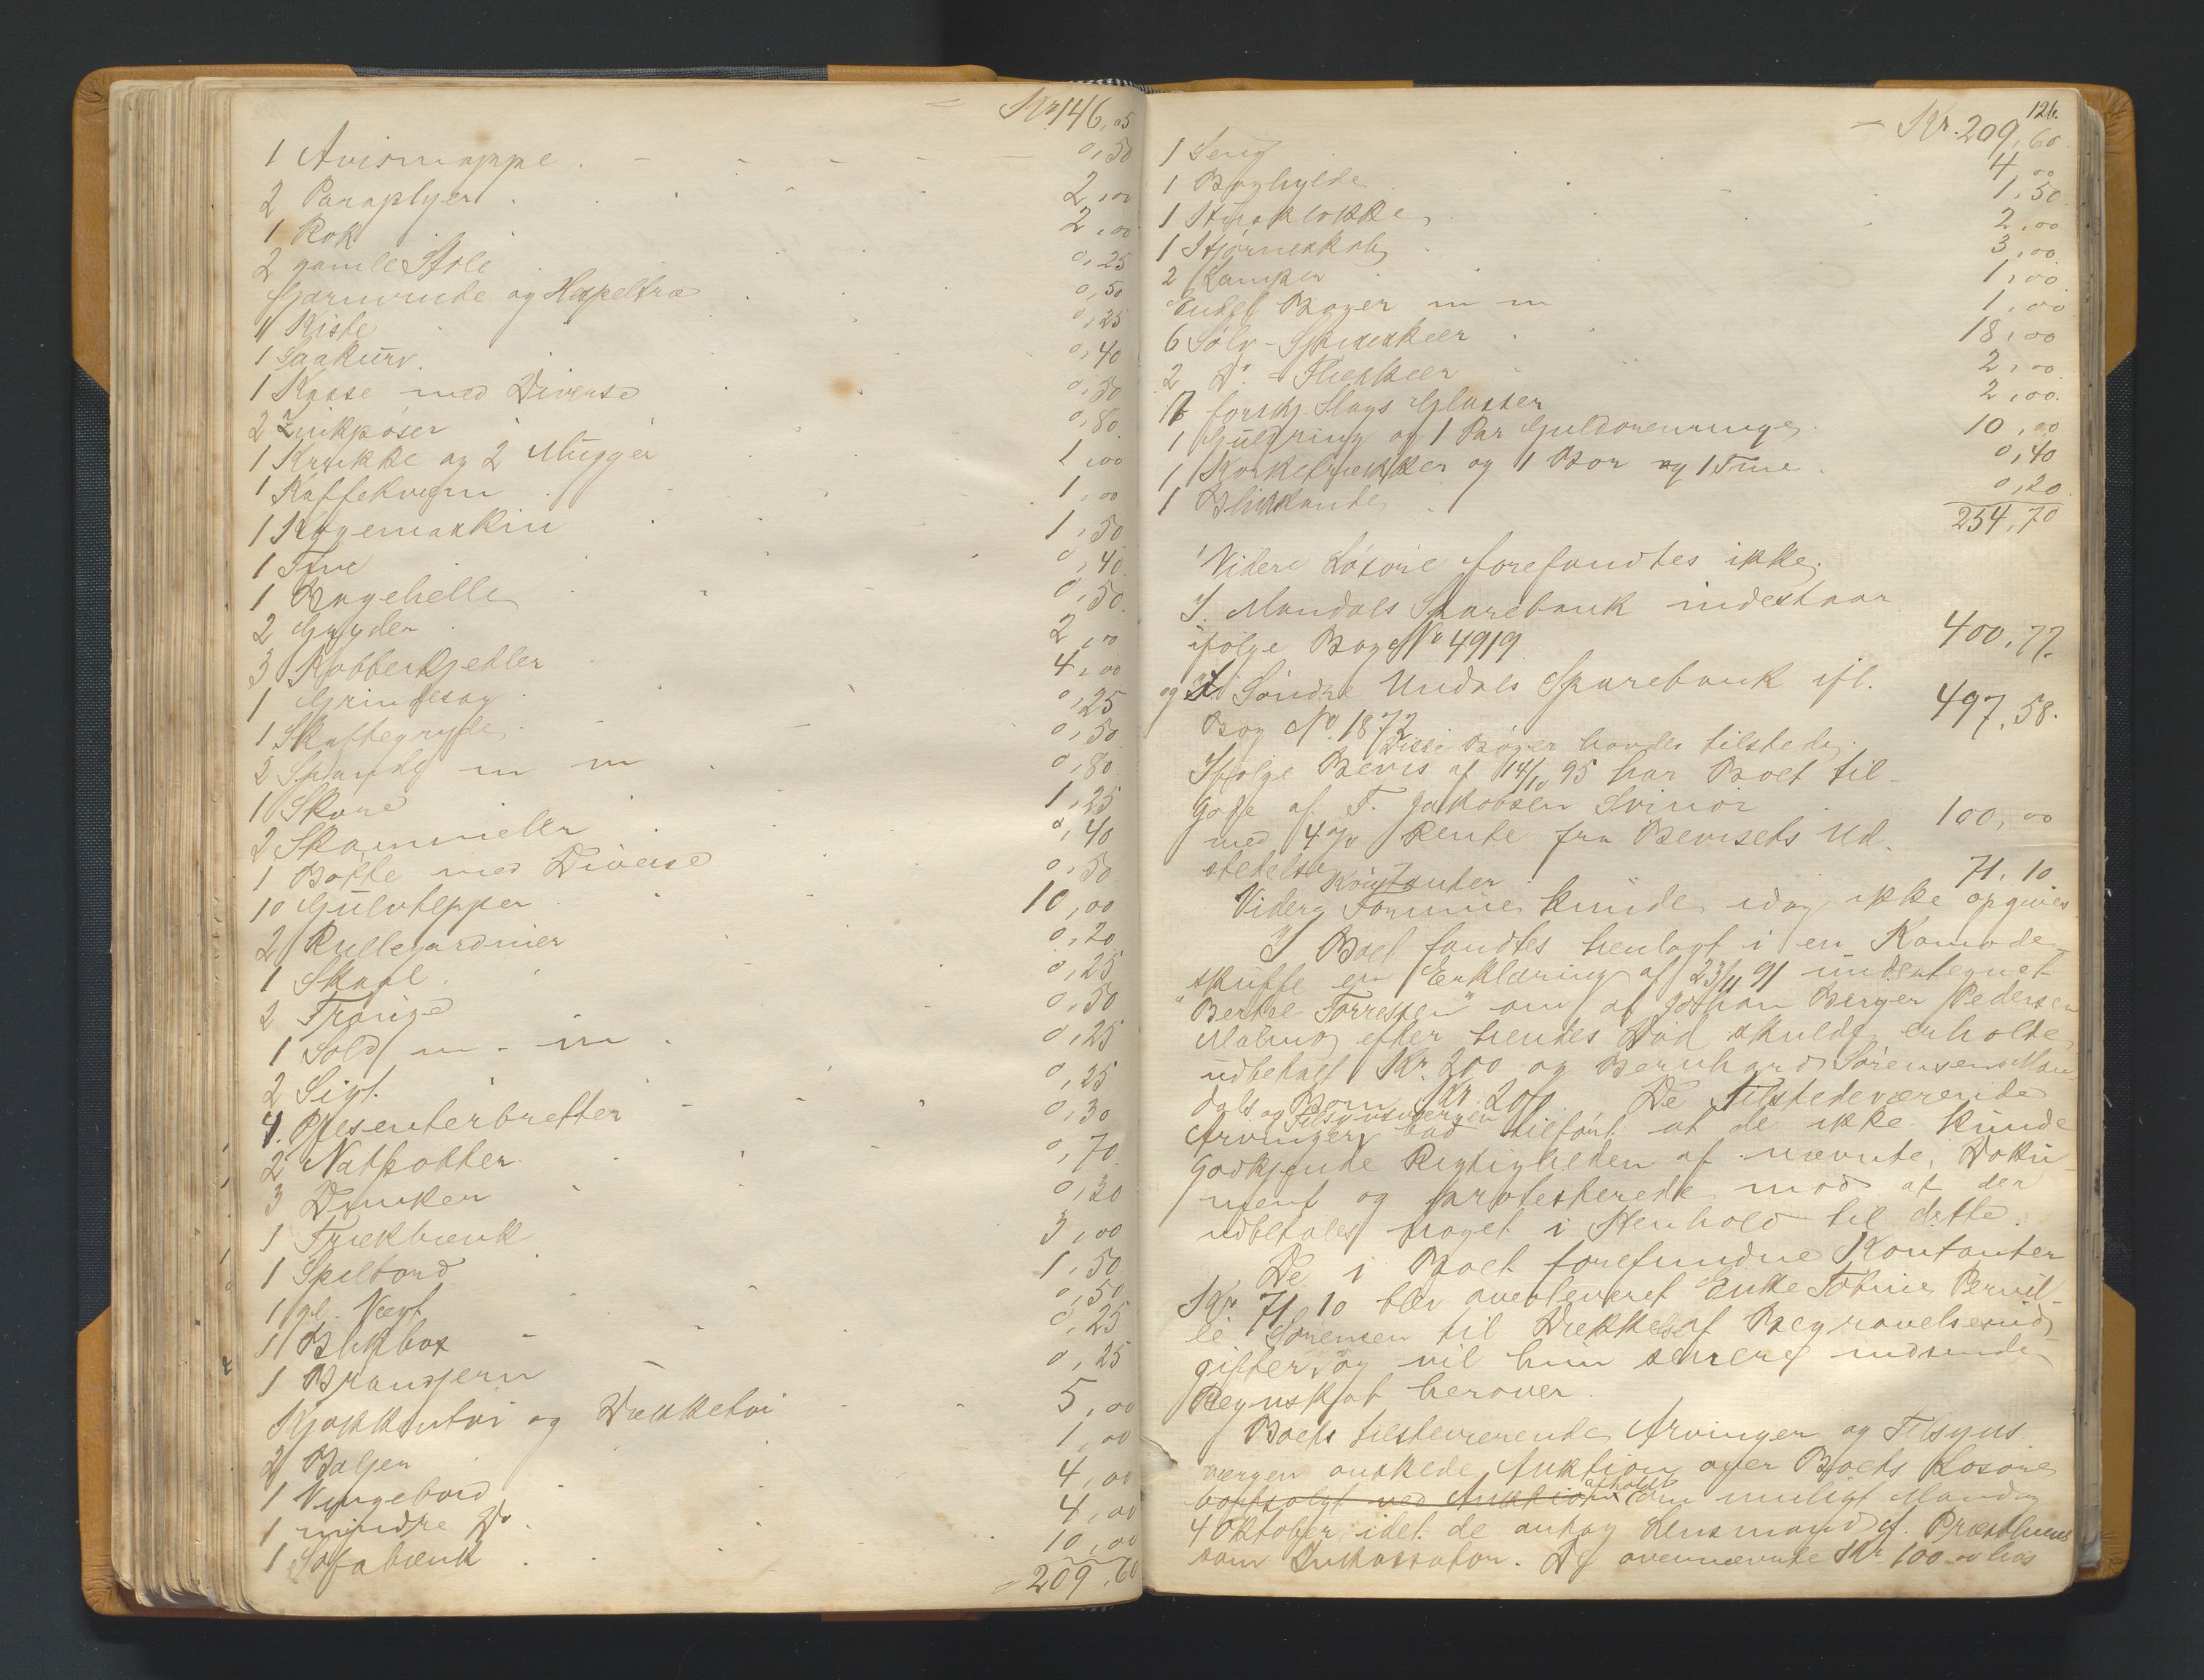 = Kr 146,05
1 Avismappe 0,50
2 Paraplyer 2,00
1 Rok 2,00
2 gamle Stole 0,25
Garnvinde og Hespeltræ 0,50
1 Kiste 0,25
1 Saakurv 0,40
1 Kasse med Diverse 0,50
2 Zinkpøser 0,80
1 Krukke og 2 Mugger 1,00
1 Kaffekværn 1,00
1 Kogemaskin 1,50
1 Tine 0,40
1 Bagehelle 0,50
2 Gryder 2,00
3 Kobberkjedler 4,00
1 Grindsag 0,25
1 Skaftegryde 0,50
2 Spande m m 0,80
1 1,25
2 Skammeler 0,40
1 Bøtte med Diverse 0,50
10 Gulvtepper 10,00
2 Rullegardiner 0,20
1 Skaal 0,25
2 Trauge 0,50
1 Sold m. m. 0,25
2 Sigt 0,25
4 Presenterbretter 0,30
2 Natpotter 0,70
3 Dunker 0,30
1 Trækbænk 3,00
1 Spilbord 1,50
1 gl. Vægt 0,50
1 Blikbox 0,25
1 Brandjern 0,25
Kjøkkentøi og Dækketøi 5,00
2 Baljer 1,00
1 Vingebord 4,00
1 mindre Do 4,00
1 Sofabænk 10,00
= 209,60
126.
= Kr. 209,60
1 Seng 4,00
1 Boghylde 1,50
1 Stueklokke 2,00
1 Hjørneskab 3,00
2 Lamper 1,00
Endel Bøger m m 1,00
6 Sølv-Spiseskeer 18,00
2 Do - Theskeer 2,00
17 forskj. Slags Glasser 2,00
1 Guldring og 1 Par Guldørenringe 10,00
1 Korketrækker og 1 Bor og 1 Tine 0,40
1 Blikkande 0,20
254,70
Videre Løsøre forefandtes ikke.
I Mandals Sparebank indestaar
ifølge Bog No 4919 400,77.
og i Søndre Undals Sparebank ifl.
Bog No 1872 497,58.
Disse Bøger havdes tilstede.
Ifølge Bevis af 14/10 95 har Boet til-
gode af T. Jakobsen Svinør 100,00
med 4 % Rente fra Bevisets Ud-
stedelse
Kontanter 71,10
Videre Formue kunde idag ikke opgives
I Boet fandtes henlagt i en Komode-
skuffe en Erklæring af 23/11 91 undertegnet
"Bertee Torresen" om at Johan Berger Pedersen
Malmø efter hendes Død skulde erholde
udbetalt Kr. 200 og Bernhard Sørensen Man
dals Børn Kr. 200. De Tilstedeværende
Arvinger og Tilsynsværgen bad tilført at de ikke kunde
godkjende Rigtigheden af nævnte Doku-
ment og protesterede mod at der
udbetales noget i Henhold til dette.
De i Boet forefundne Kontanter
Kr. 71,10 blev overleveret Enke Tobine Pernil-
le Sørensen til Dækkelse af Begravelsesud-
gifter, og vil hun senere indsende
Regnskab herover.
Boets tilstedeværende Arvinger og Tilsyns
værgen ønskede Auktion over Boets Løsøre
bortsolgt ved Auktion afholdt om muligt Mandag
4 Oktober, idet de antog Lensmand
som Inkassator. De ovennævnte Kr. 100.00 hos